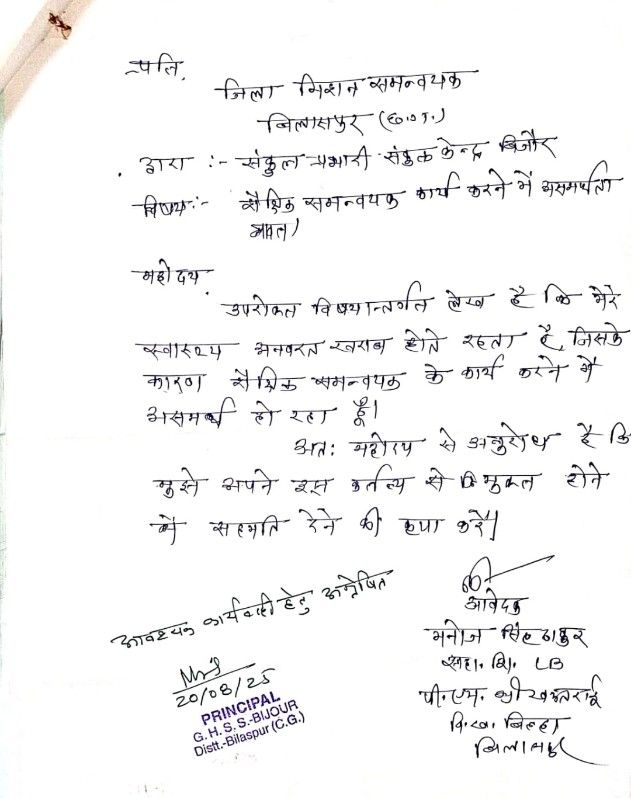 प्रति,
जिला मिशन समन्वयक
बिलासपुर (छ०ग०)
द्वारा :- संकुल प्रभारी संकुल केन्द्र बिजौर
विषय:- शैक्षिक समन्वयक कार्य करने में असमर्थता
बाबत।
महोदय,
उपरोक्त विषयान्तर्गत लेख है कि मेरे
स्वास्थ्य अनवरत खराब होते रहता है, जिसके
कारण शैक्षिक समन्वयक के कार्य करने में
असमर्थ हो रहा हूँ।
अत: महोदय से अनुरोध है कि
मुझे अपने इस कर्तव्य से विमुक्त होने
में सहमति देने की कृपा करें।
आवश्यक कार्यवाही हेतु अग्रेषित
20/08/25
PRINCIPAL
G.H.S.S.-BIJOUR
Distt.-Bilaspur (C.G.)
आवेदक
मनोज सिंह ठाकुर
सहा. शि. LB
पी.एम. श्री
वि.ख. बिल्हा
बिलासपुर